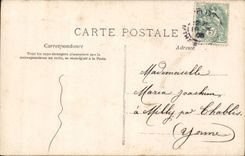 CARTE POSTALE
Correspondance
Tous les pays étrangers n'acceptent pas la
correspondance au recto, se renseigner à la Poste.
Adresse
Mademoiselle
Maria Joachim
à Milly par Chablis
Yonne